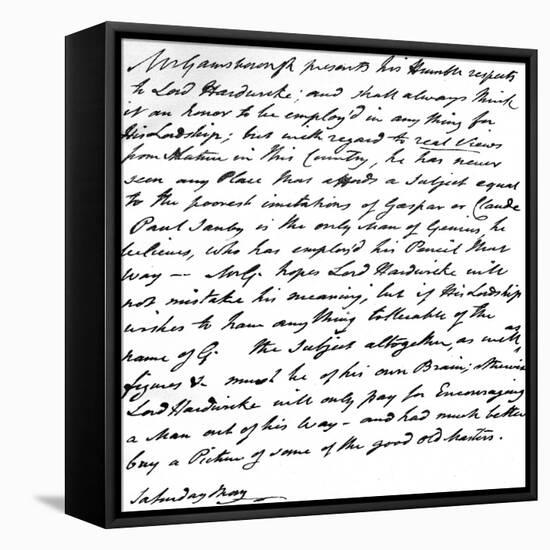 Mr Gainsborough presents his Humble respects
to Lord Hardwicke; and shall always think
it an honor to be employ'd in any thing for
His Lordship; but with regard to real Views
from Nature in this Country, he has never
seen any Place that affords a Subject equal
to the poorest imitations of Gaspar or Claude
Paul Sanby is the only Man of Genius, he
believes, who has employ'd his Pencil that
way — Mr G. hopes Lord Hardwicke will
not mistake his meaning, but if His Lordship
wishes to have any thing tollerable of the
name of G. the Subject altogether, as well as
figures &c must be of his own Brain; otherwise
Lord Hardwicke will only pay for Encouraging
a Man out of his Way – and had much better
buy a Picture of some of the good old Masters.
Saturday Morg